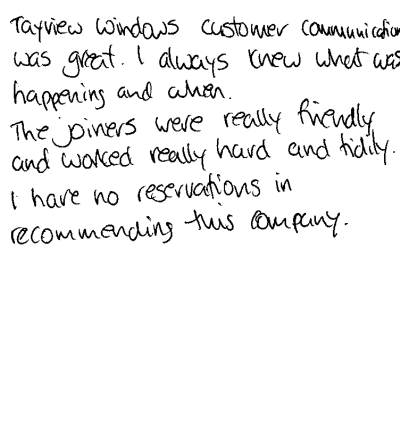 Tayview Windows customer communication
was great. I always knew what was
happening and when.
The joiners were really friendly
and worked really hard and tidily.
I have no reservations in
recommending this company.